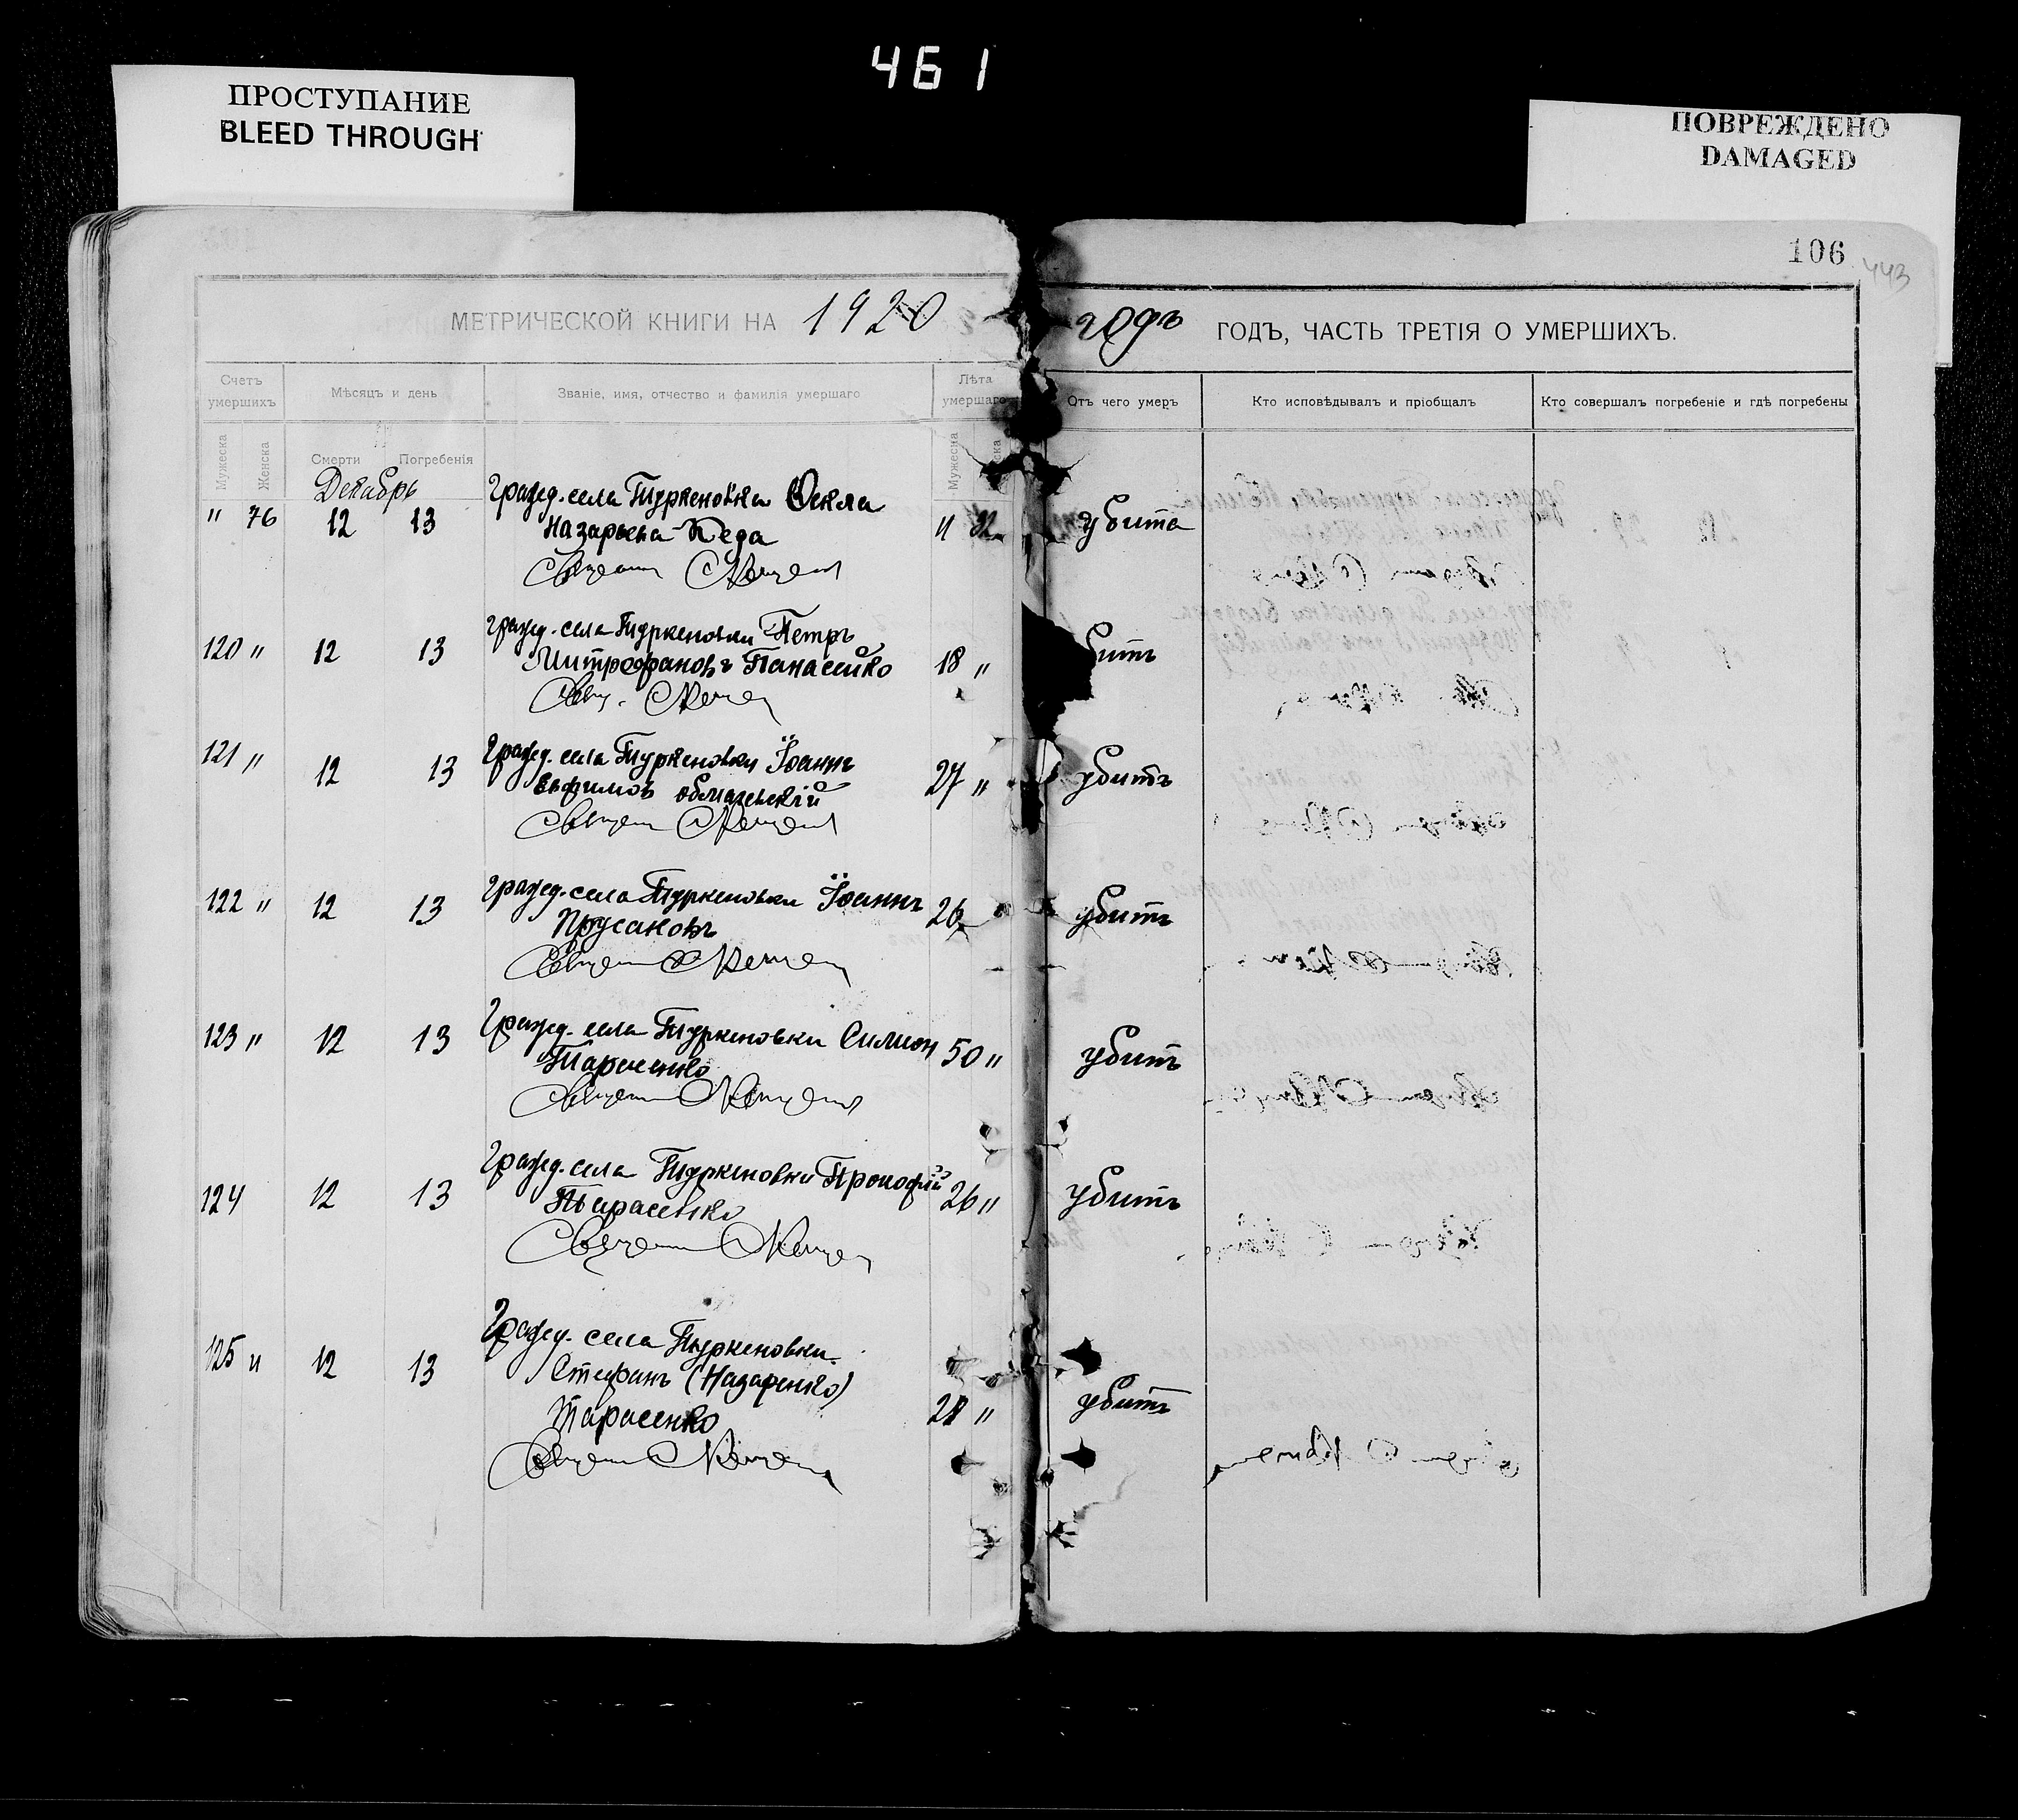 461
ПРОСТУПАНИЕ
BLEED THROUGH
ПОВРЕЖДЕНО
DAMAGED
106
443
МЕТРИЧЕСКОЙ КНИГИ НА 1920 годъ ГОДЪ, ЧАСТЬ ТРЕТІЯ О УМЕРШИХЪ.
Счетъ умершихъ
Мѣсяцъ и день
Званіе, имя, отчество и фамилія умершаго
Лѣта умершаго
Отъ чего умеръ
Кто исповѣдывалъ и пріобщалъ
Кто совершалъ погребеніе и гдѣ погребены
Мужеска
Женска
Смерти
Погребенія
Мужеска
ска
Декабрь
Гражд. села Туркеновки Ѳекла
" 76 12 13 Назарьева Кеда и 32 убита
Гражд. села Туркеновки Петръ
120 " 12 13 Митрофановъ Панасенко 18 " битъ
Гражд. села Туркеновки Іоаннъ
121 " 12 13 Евфимовъ 27 " убитъ
Гражд. села Туркеновки Іоаннъ
122 " 12 13 Прусаковъ 26 убитъ
Гражд. села Туркеновки Симион
123 " 12 13 Тарасенко 50 " убитъ
Гражд. села Туркеновки Прокофій
124 12 13 Тарасенко 26 " убитъ
Гражд. села Туркеновки
125 и 12 13 Стефанъ (Назаренко)
Тарасенко " убитъ